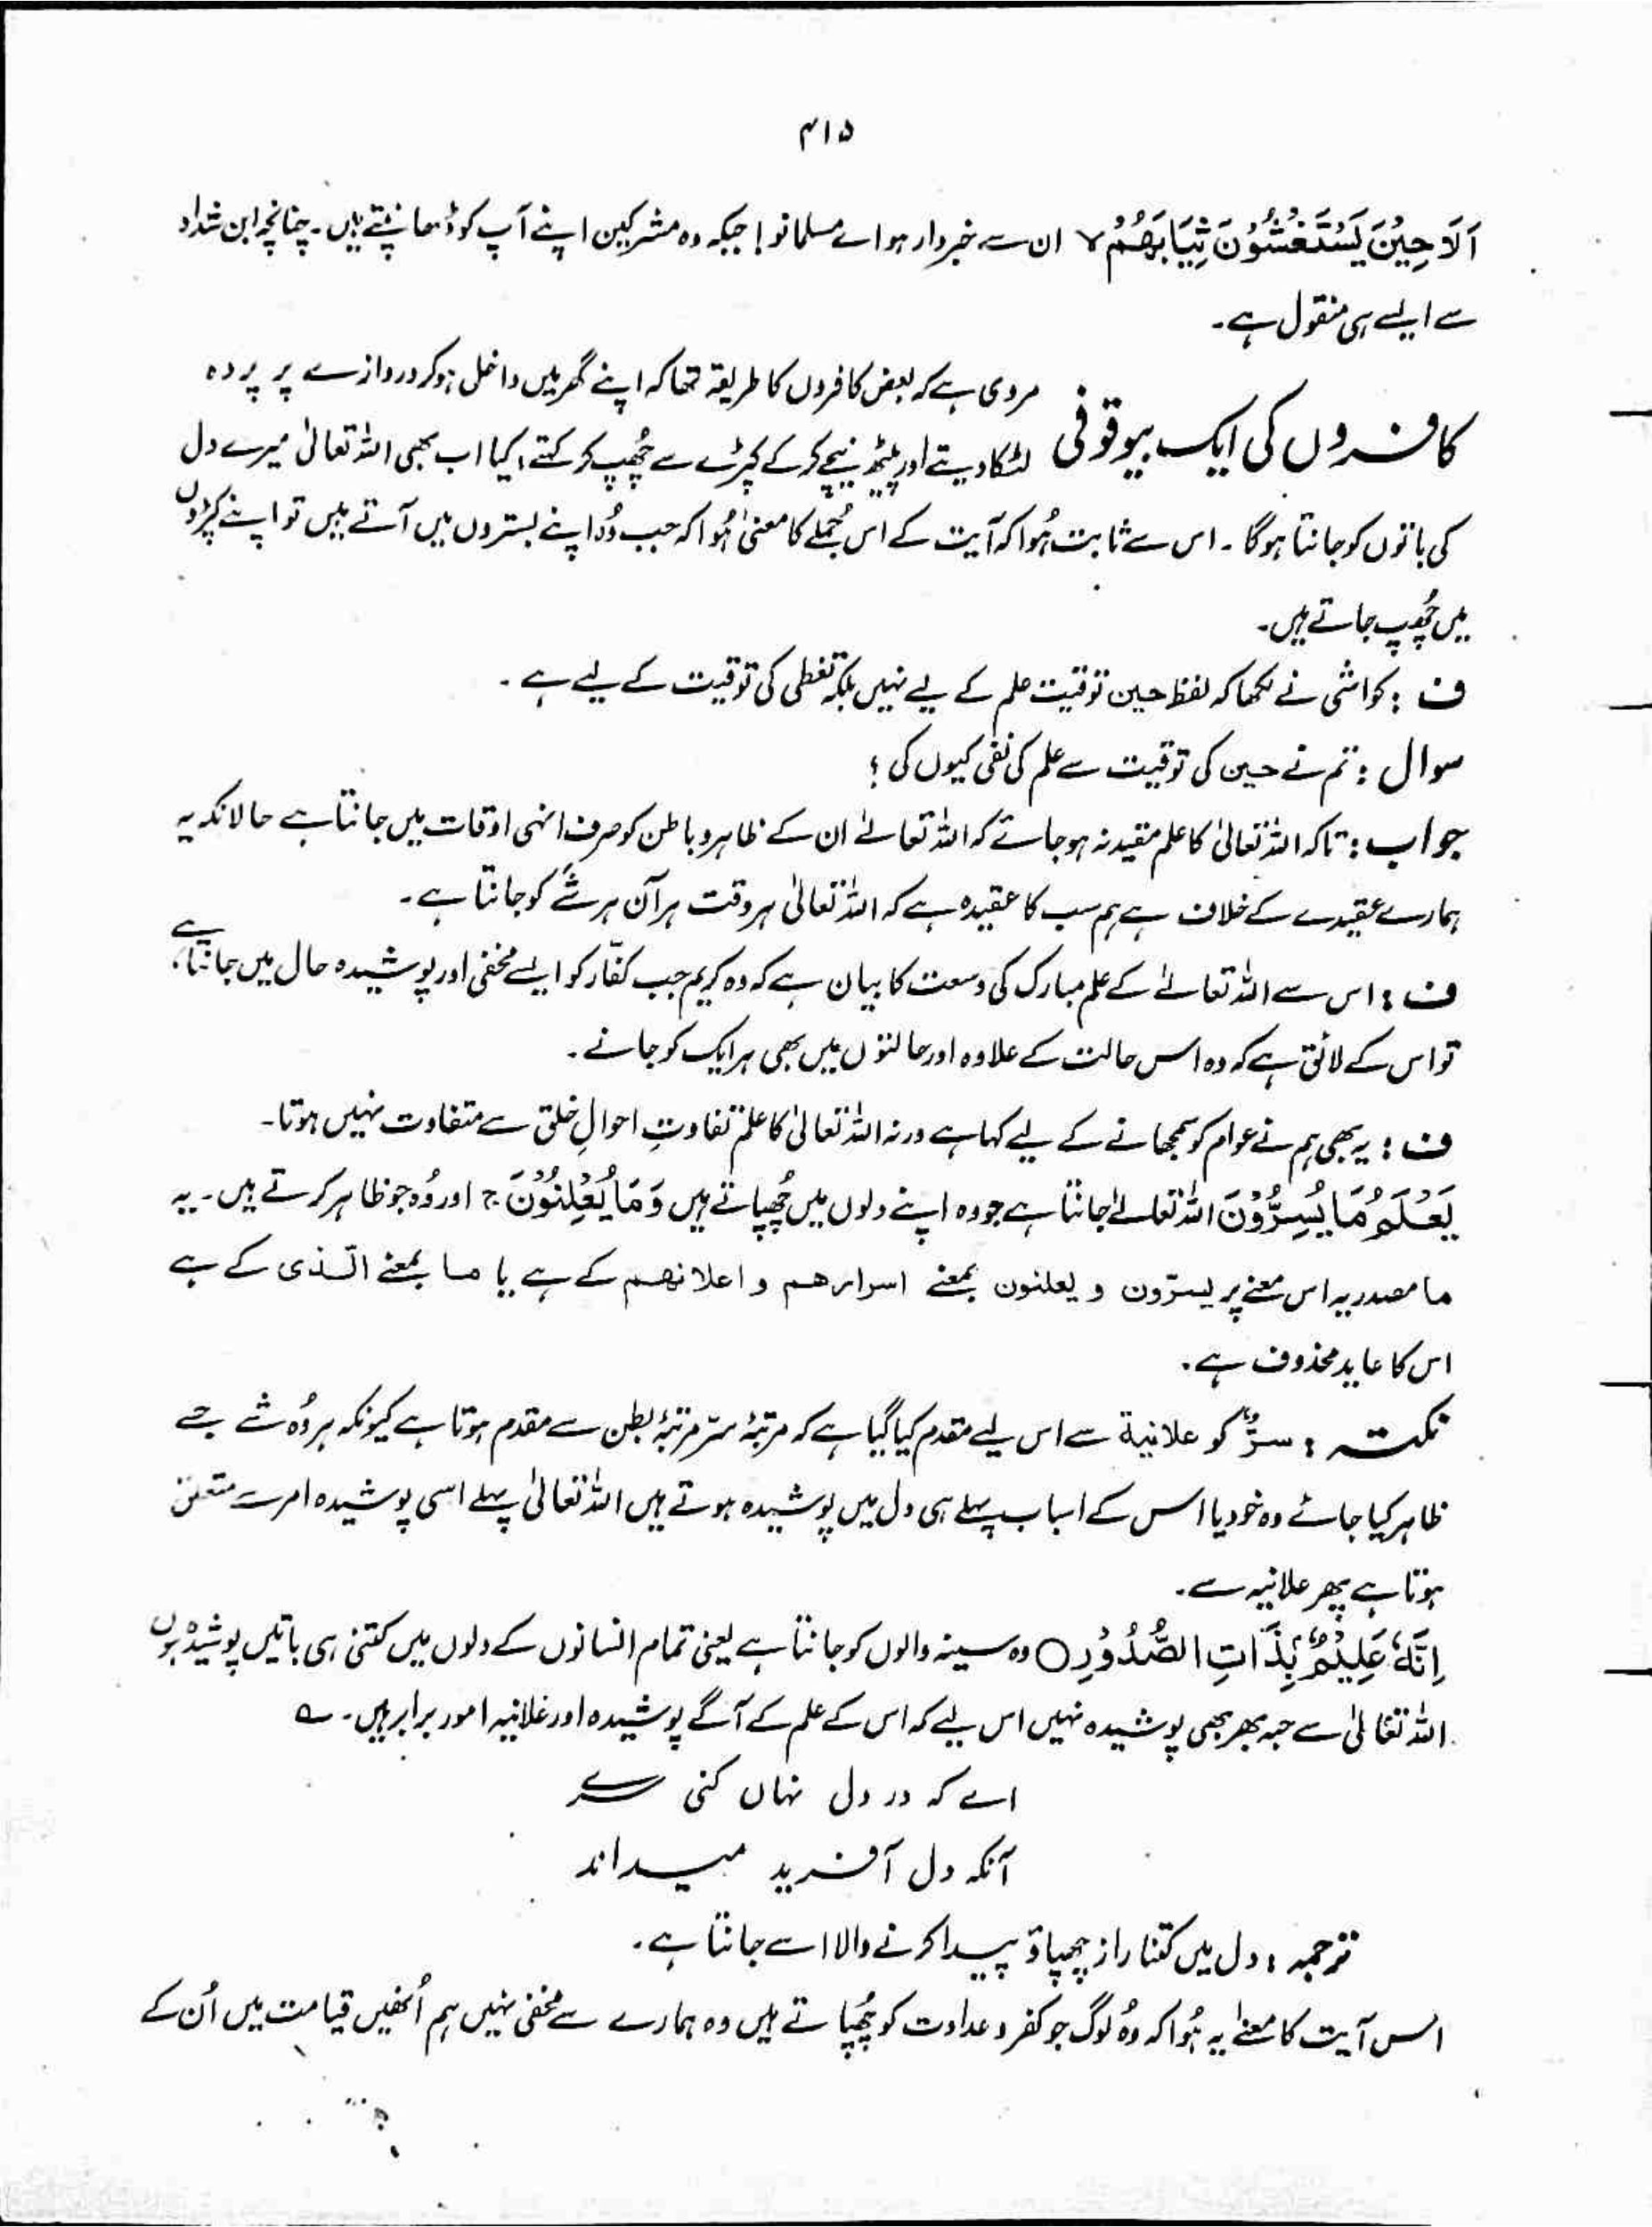 ۴۱۵
اَلَا حِیْنَ یَسْتَغْشُوْنَ ثِیَابَهُمْ ۙ ان سے خبردار ہو اے مسلمانو! جبکہ وہ مشرکین اپنے آپ کو ڈھانپتے ہیں۔ چنانچہ ابن شداد
سے ایسے ہی منقول ہے۔
کافروں کی ایک بیوقوفی مروی ہے کہ بعض کافروں کا طریقہ تھا کہ اپنے گھر میں داخل ہو کر دروازے پر پردہ
لٹکا دیتے اور پیٹھ نیچے کر کے کپڑے سے چُھپ کر کہتے، کیا اب بھی اللہ تعالیٰ میرے دل
کی باتوں کو جانتا ہوگا۔ اس سے ثابت ہُوا کہ آیت کے اس جُملے کا معنیٰ ہُوا کہ جب وُہ اپنے بستروں میں آتے ہیں تو اپنے کپڑوں
میں چُھپ جاتے ہیں۔
ف : کواشی نے لکھا کہ لفظ حین توقیت علم کے لیے نہیں بلکہ تغطی کی توقیت کے لیے ہے۔
سوال : تم نے حین کی توقیت سے علم کی نفی کیوں کی ؟
جواب : تاکہ اللہ تعالیٰ کا علم مقید نہ ہو جائے کہ اللہ تعالےٰ ان کے ظاہر و باطن کو صرف انہی اوقات میں جانتا ہے حالانکہ یہ
ہمارے عقیدے کے خلاف ہے ہم سب کا عقیدہ ہے کہ اللہ تعالیٰ ہر وقت ہر آن ہر شَے کو جانتا ہے۔
ف : اس سے اللہ تعالےٰ کے علم مبارک کی وسعت کا بیان ہے کہ وہ کریم جب کفّار کو ایسے مخفی اور پوشیدہ حال میں جانتا ہے،
تو اس کے لائق ہے کہ وہ اس حالت کے علاوہ اور حالتوں میں بھی ہر ایک کو جانے۔
ف : یہ بھی ہم نے عوام کو سمجھانے کے لیے کہا ہے ورنہ اللہ تعالیٰ کا علم تفاوتِ احوالِ خلق سے متفاوت نہیں ہوتا۔
یَعْلَمُ مَا یُسِرُّوْنَ اللہ تعالےٰ جانتا ہے جو وہ اپنے دلوں میں چُھپاتے ہیں وَمَا یُعْلِنُوْنَ ۚ اور وُہ جو ظاہر کرتے ہیں۔ یہ
ما مصدریہ اس معنے پر یسرّون و یعلنون بمعنے اسرارھم و اعلانھم کے ہے یا ما بمعنے الّذی کے ہے
اس کا عاید محذوف ہے۔
نکتہ : سرٌّ کو علانیة سے اس لیے مقدم کیا گیا ہے کہ مرتبۂ سرّ مرتبۂ بطن سے مقدم ہوتا ہے کیونکہ ہر وُہ شے جسے
ظاہر کیا جائے وہ خود یا اس کے اسباب پہلے ہی دل میں پوشیدہ ہوتے ہیں اللہ تعالیٰ پہلے اسی پوشیدہ امر سے متعلق
ہوتا ہے پھر علانیہ سے۔
اِنَّهٗ عَلِیْمٌۢ بِذَاتِ الصُّدُوْرِ ○ وہ سینہ والوں کو جانتا ہے یعنی تمام انسانوں کے دلوں میں کتنی ہی باتیں پوشیدہ ہوں
اللہ تعالیٰ سے حبہ بھر بھی پوشیدہ نہیں اس لیے کہ اس کے علم کے آگے پوشیدہ اور علانیہ امور برابر ہیں۔ ؎
اے کہ در دل نہاں کنی سرے
آنکہ دل آفرید میداند
ترجمہ : دل میں کتنا راز چھپاؤ پیدا کرنے والا اسے جانتا ہے۔
اس آیت کا معنےٰ یہ ہُوا کہ وُہ لوگ جو کفر و عداوت کو چُھپاتے ہیں وہ ہمارے سے مخفی نہیں ہم اُنھیں قیامت میں اُن کے